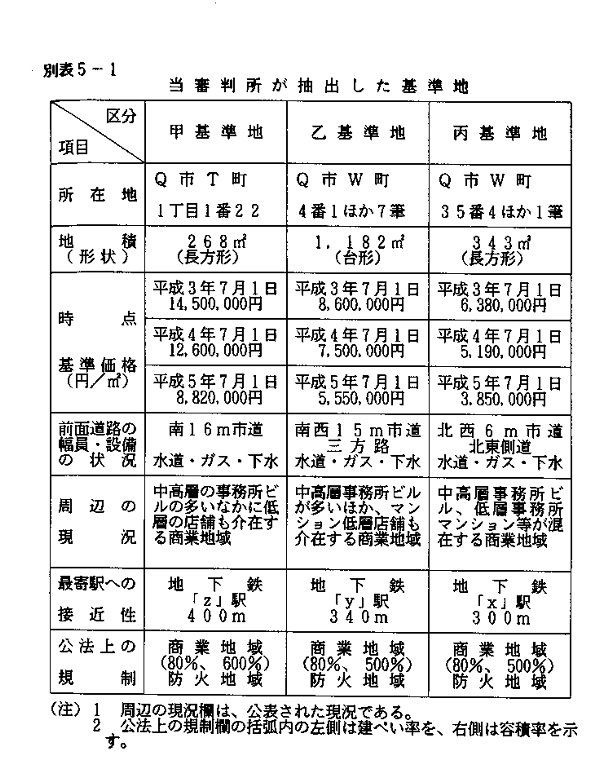 別表5-1
当審判所が抽出した基準地
区分
項目
甲基準地 乙基準地 丙基準地
所在地
Q市T町
1丁目1番22
Q市W町
4番1ほか7筆
Q市W町
35番4ほか1筆
地積
(形状)
268㎡
(長方形)
1,182㎡
(台形)
343㎡
(長方形)
時点
基準価格
(円/㎡)
平成3年7月1日
14,500,000円
平成3年7月1日
8,600,000円
平成3年7月1日
6,380,000円
平成4年7月1日
12,600,000円
平成4年7月1日
7,500,000円
平成4年7月1日
5,190,000円
平成5年7月1日
8,820,000円
平成5年7月1日
5,550,000円
平成5年7月1日
3,850,000円
前面道路の
幅員・設備
の状況
南16m市道
水道・ガス・下水
南西15m市道
三方路
水道・ガス・下水
北西6m市道
北東側道
水道・ガス・下水
周辺の
現況
中高層の事務所ビ
ルの多いなかに低
層の店舗も介在す
る商業地域
中高層事務所ビル
が多いほか、マン
ション低層店舗も
介在する商業地域
中高層事務所ビ
ル、低層事務所
マンション等が混
在する商業地域
最寄駅への
接近性
地下鉄
「z」駅
400m
地下鉄
「y」駅
340m
地下鉄
「x」駅
300m
公法上の
規制
商業地域
(80%、600%)
防火地域
商業地域
(80%、500%)
防火地域
商業地域
(80%、500%)
防火地域
(注) 1 周辺の現況欄は、公表された現況である。
2 公法上の規制欄の括弧内の左側は建ぺい率を、右側は容積率を示
す。